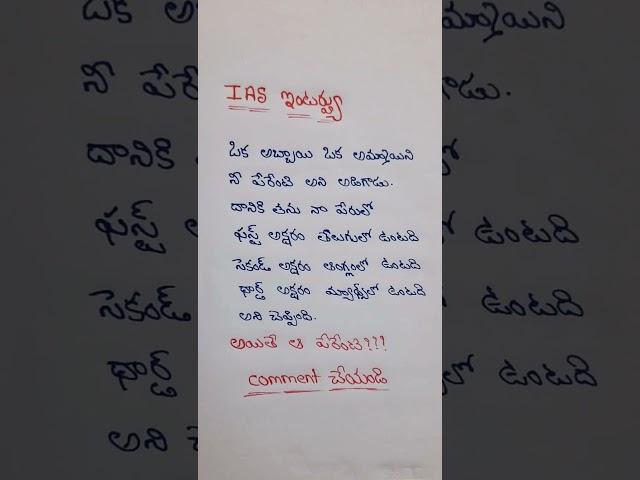 IAS ఇంటర్వ్యూ
ఒక అబ్బాయి ఒక అమ్మాయిని
నీ పేరేంటి అని అడిగాడు.
దానికి తను నా పేరులో
ఫస్ట్ అక్షరం తెలుగులో ఉంటుది
సెకండ్ అక్షరం ఆంగ్లంలో ఉంటుది
థర్డ్ అక్షరం మ్యాథ్స్‌లో ఉంటుది
అని చెప్పింది.
అయితే ఆ పేరేంటి???
comment చేయండి